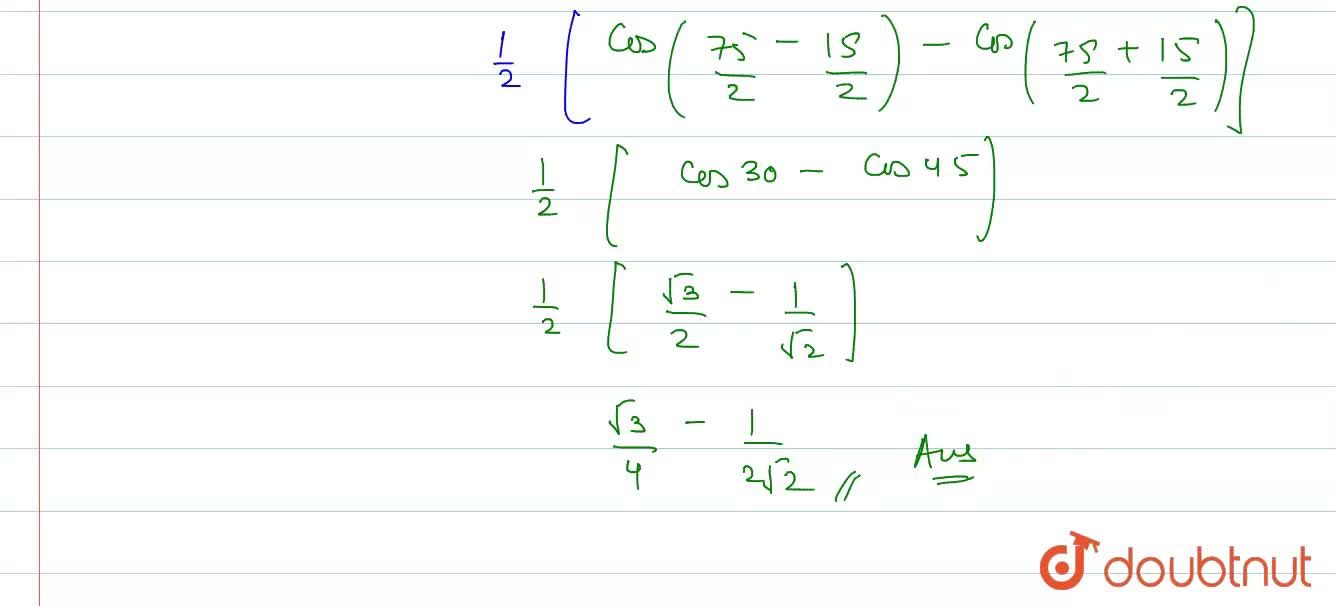 1/2 [ Cos ( 75/2 - 15/2 ) - Cos ( 75/2 + 15/2 ) ]
1/2 [ Cos 30 - Cos 45 ]
1/2 [ √3/2 - 1/√2 ]
√3/4 - 1/2√2 // Ans
doubtnut